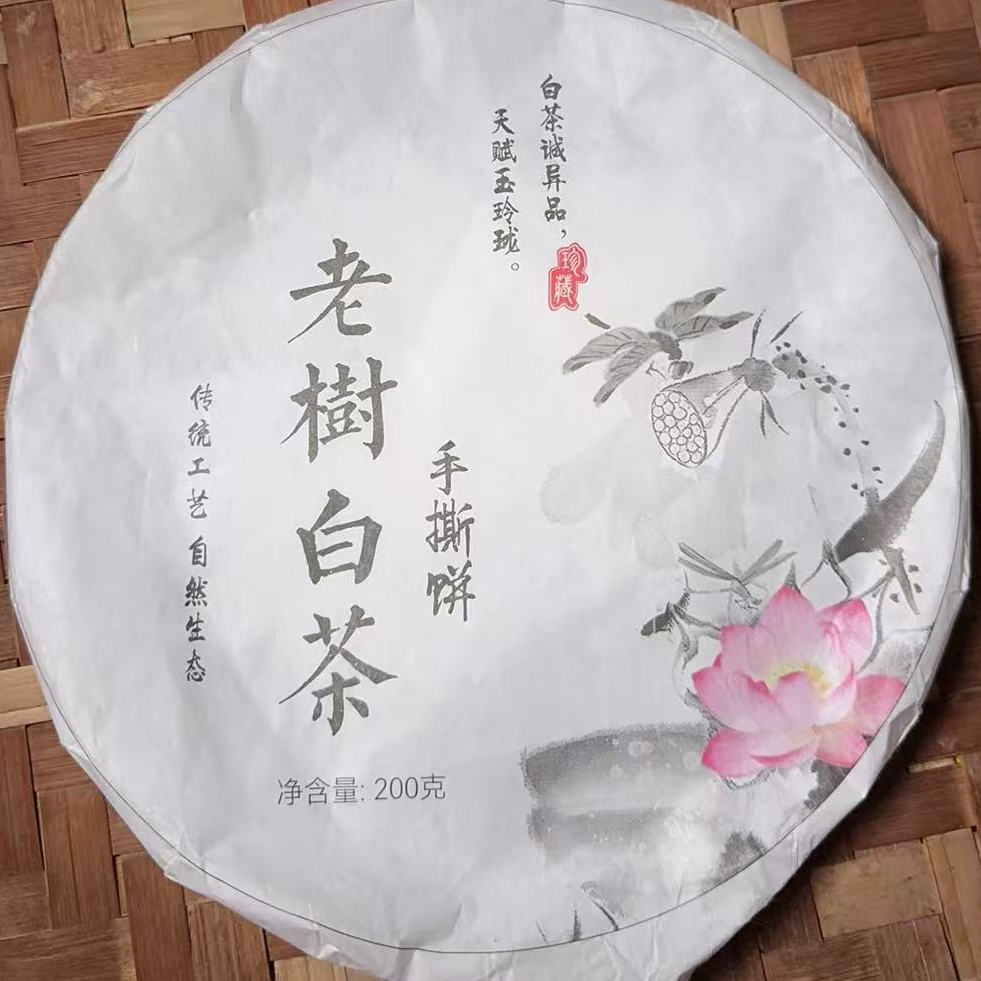 白茶诚异品，
天赋玉玲珑。
珍藏
手撕饼
老樹白茶
传统工艺 自然生态
净含量: 200克